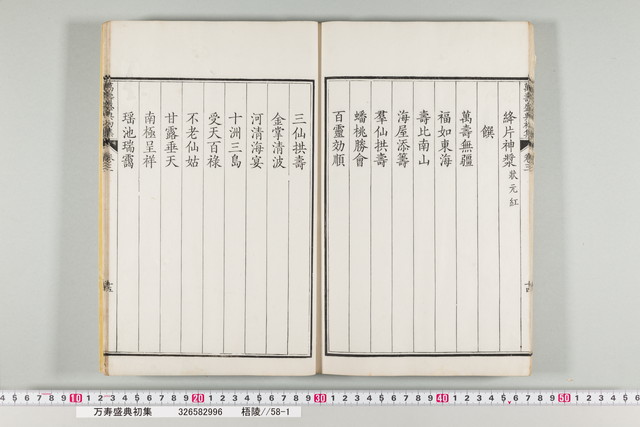 絳片神漿狀元紅
饌
萬壽無疆
福如東海
壽比南山
海屋添籌
羣仙拱壽
蟠桃勝會
百靈効順
三仙拱壽
金掌清波
河清海宴
十洲三島
受天百祿
不老仙姑
甘露垂天
南極呈祥
瑶池瑞靄
万寿盛典初集 326582996 梧陵//58-1